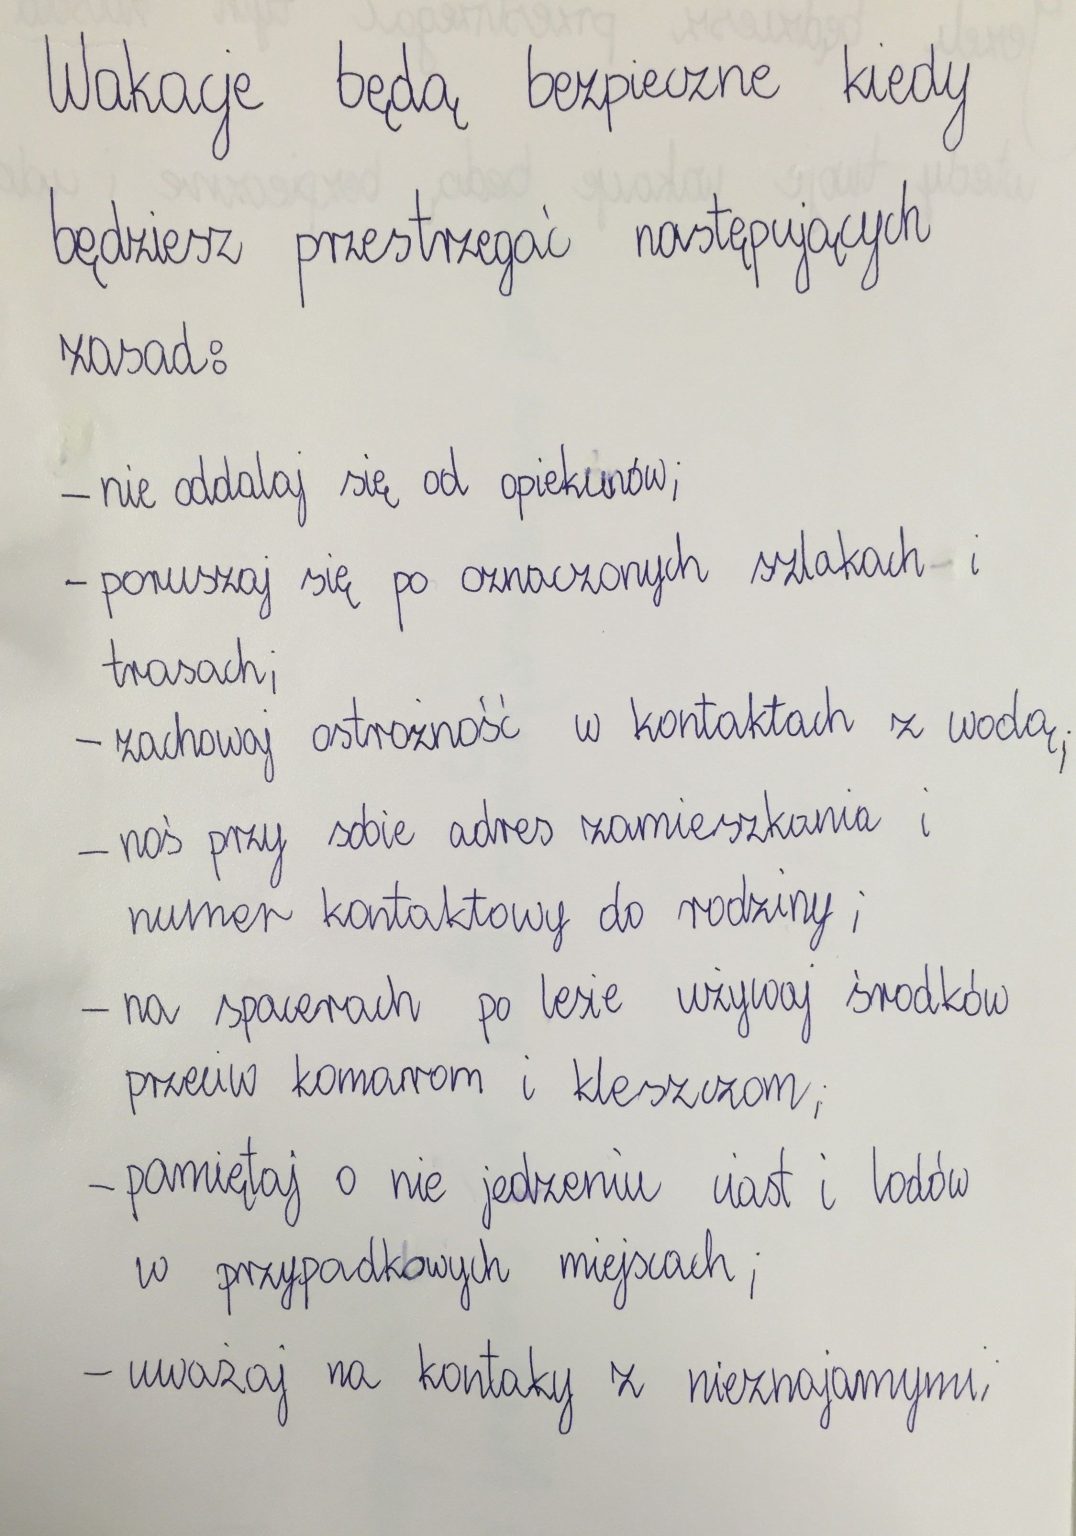 Wakacje będą bezpieczne kiedy
będziesz przestrzegać następujących
zasad:
- nie oddalaj się od opiekunów;
- poruszaj się po oznaczonych szlakach i
trasach;
- zachowaj ostrożność w kontaktach z wodą;
- noś przy sobie adres zamieszkania i
numer kontaktowy do rodziny;
- na spacerach po lesie używaj środków
przeciw komarom i kleszczom;
- pamiętaj o nie jedzeniu ciast i lodów
w przypadkowych miejscach;
- uważaj na kontaky z nieznajamymi;